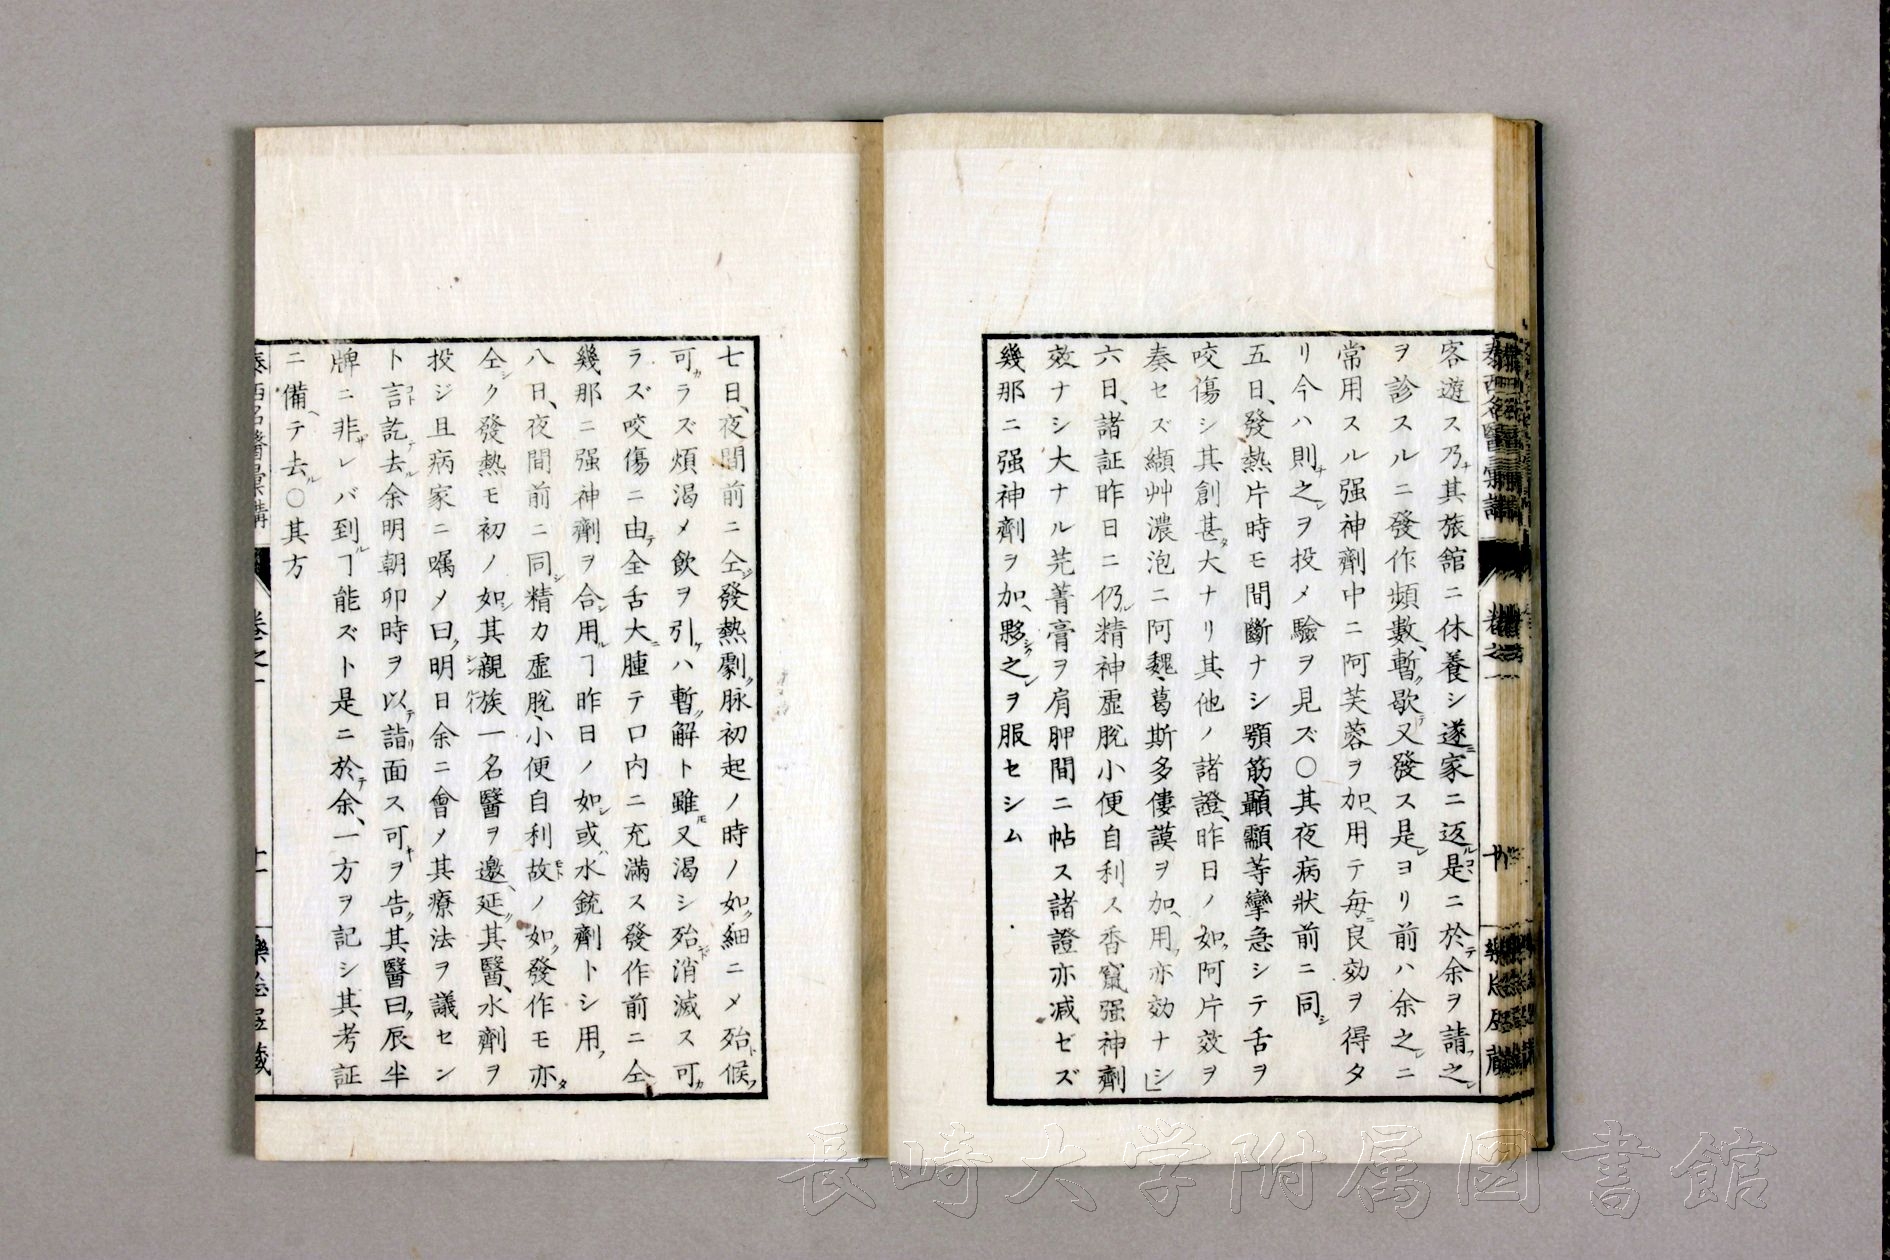 泰西名醫彙講
卷之一
客遊ス乃ナ其旅舘ニ休養シ遂ニ家ニ返ル是コニ於テ余ヲ請フ之レ
ヲ診スルニ發作頻數、暫ク歇テ又發ス是レヨリ前ハ余之レニ
常用スル强神劑中ニ阿芙蓉ヲ加ヘ用テ毎ニ良効ヲ得タ
リ今ハ則ナ之レヲ投メ驗ヲ見ズ〇其夜病狀前ニ同シ
五日、發熱片時モ間斷ナシ顎筋、顳顬等攣急シテ舌ヲ
咬傷シ其創甚タ大ナリ其他ノ諸證、昨日ノ如ク阿片效ヲ
奏セズ纈艸濃泡ニ阿魏、葛斯多僂謨ヲ加ヘ用フ亦効ナシ
六日、諸証昨日ニ仍ル精神虛脫小便自利ス香竄强神劑
效ナシ大ナル芫菁膏ヲ肩胛間ニ帖ス諸證亦減ゼズ
幾那ニ强神劑ヲ加ヘ夥シク之レヲ服セシム
七日、夜間前ニ仝ジ發熱劇ク脉初起ノ時ノ如ク細ニメ殆ト候フ
可カラズ煩渴メ飮ヲ引ケハ暫ク解ト雖モ又渴シ殆ド消滅ス可カ
ラズ咬傷ニ由テ全舌大ニ腫テ口内ニ充滿ス發作前ニ仝
幾那ニ强神劑ヲ合シ用ルヿ昨日ノ如シ或ハ水銃劑トシ用フ
八日、夜間前ニ同シ精力虛脫、小便自利故モトノ如ク發作モ亦タ
仝シク發熱モ初ノ如シ其親シン族一名醫ヲ邀ヘ延ク其醫、水劑ヲ
投ジ且病家ニ囑メ曰ク明日余ニ會ノ其療法ヲ議セン
ト言コト訖テ去ル余明朝卯時ヲ以テ詣リ面ス可キヲ告ク其醫曰ク辰半
牌ニ非ザレバ到ルヿ能ズト是ニ於テ余、一方ヲ記シ其考証
ニ備ヘテ去ル〇其方
泰西名醫彙講
卷之一